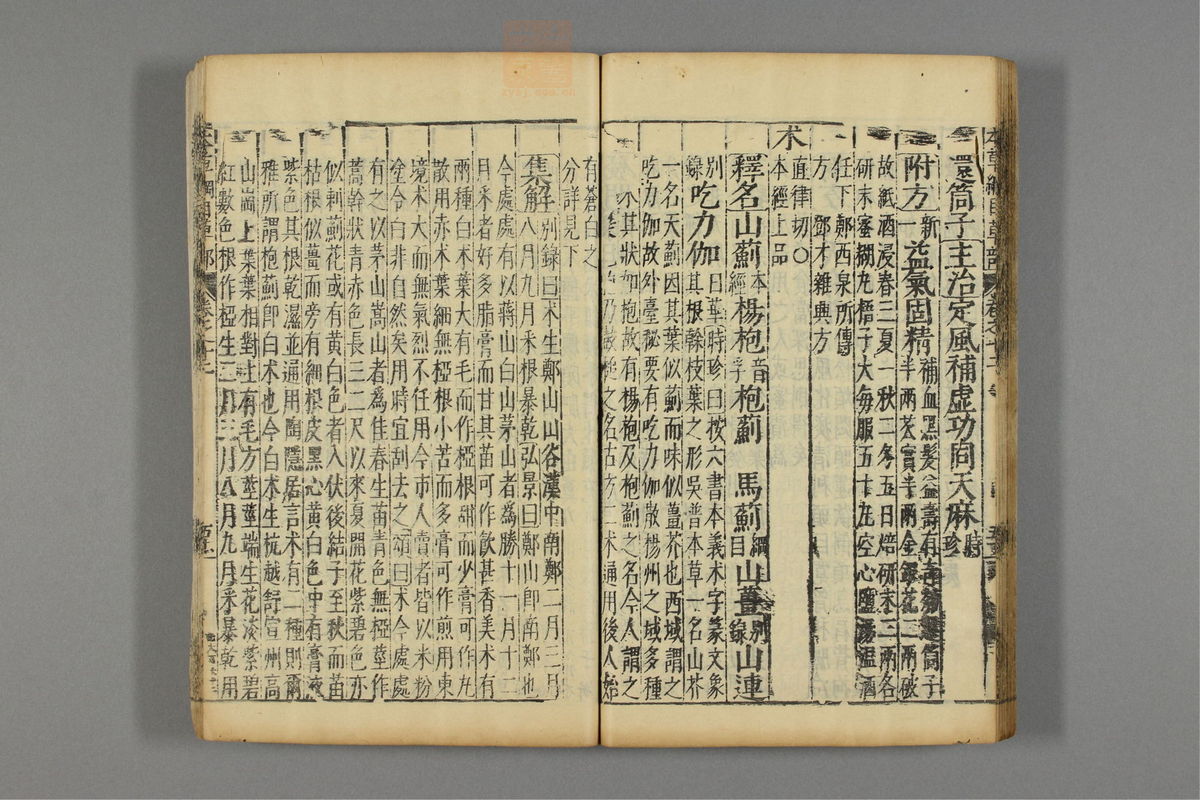 還筒子主治定風補虛功同天麻時珍
附方新一益氣固精補血黑髮益壽有奇效還筒子
半兩芡實半兩金銀花二兩破
故紙酒浸春三夏一秋二冬五日焙研末二兩各
研末蜜糊丸梧子大每服五十丸空心鹽湯溫酒
任下鄭西泉所傳
方 鄧才雜興方
术
直律切〇
本經上品
釋名山薊本經楊枹音孚枹薊 馬薊綱目山薑別錄山連
別錄吃力伽日華時珍曰按六書本義术字篆文象
其根幹枝葉之形吳普本草一名山芥
一名天薊因其葉似薊而味似薑芥也西域謂之
吃力伽故外臺秘要有吃力伽散楊州之域多種
其狀如枹故有楊枹及枹薊之名今人謂之
之名古方二术通用後人始
有蒼白之
分詳見下
集解別錄曰术生鄭山山谷漢中南鄭二月三月
八月九月采根暴乾弘景曰鄭山即南鄭也
今處處有以蔣山白山茅山者為勝十一月十二
月采者好多脂膏而甘其苗可作飲甚香美术有
兩種白术葉大有毛而作椏根甜而少膏可作丸
散用赤术葉細無椏根小苦而多膏可作煎用東
境术大而無氣烈不任用今市人賣者皆以米粉
塗令白非自然矣用時宜刮去之頌曰术今處處
有之以茅山嵩山者為佳春生苗青色無椏莖作
蒿幹狀青赤色長三二尺以來夏開花紫碧色亦
似刺薊花或有黃白色者入伏後結子至秋而苗
枯根似薑而旁有細根皮黑心黃白色中有膏液
紫色其根乾濕並通用陶隱居言术有二種則爾
雅所謂枹薊即白术也今白术生杭越舒宣州高
山崗上葉葉相對上有毛方莖莖端生花淡紫碧
紅數色根作椏生二月三月八月九月采暴乾用